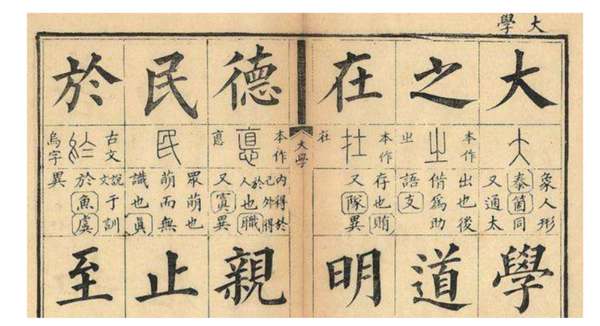 大學
大
象人形
泰箇同
又通太
學
之
本作㞢
出也後
借為助
語支
道
在
本作在
存也賄
又隊異
明
大學
德
本作悳
內得於
己外得
於人也職
又寘異
親
民
眾萌也
萌而無
識也真
止
於
古文
烏字
說文于訓
於魚虞
異
至